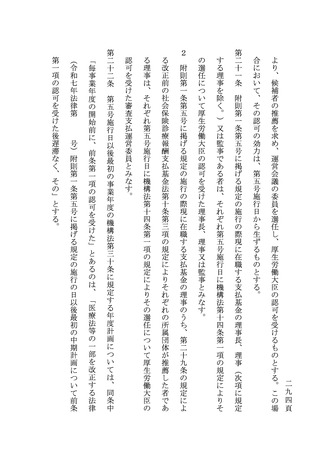 二九四頁
より、候補者の推薦を求め、運営会議の委員を選任し、厚生労働大臣の認可を受けるものとする。この場
合において、その認可の効力は、第五号施行日から生ずるものとする。
第二十一条　附則第一条第五号に掲げる規定の施行の際現に在職する支払基金の理事長、理事（次項に規定
する理事を除く。）又は監事である者は、それぞれ第五号施行日に機構法第十四条第一項の規定によりそ
の選任について厚生労働大臣の認可を受けた理事長、理事又は監事とみなす。
２　附則第一条第五号に掲げる規定の施行の際現に在職する支払基金の理事のうち、第二十九条の規定によ
る改正前の社会保険診療報酬支払基金法第十条第三項の規定によりそれぞれの所属団体が推薦した者であ
る理事は、それぞれ第五号施行日に機構法第十四条第一項の規定によりその選任について厚生労働大臣の
認可を受けた審査支払運営委員とみなす。
第二十二条　第五号施行日以後最初の事業年度の機構法第三十条に規定する年度計画については、同条中
「毎事業年度の開始前に、前条第一項の認可を受けた」とあるのは、「医療法等の一部を改正する法律
（令和七年法律第　　　号）附則第一条第五号に掲げる規定の施行の日以後最初の中期計画について前条
第一項の認可を受けた後遅滞なく、その」とする。